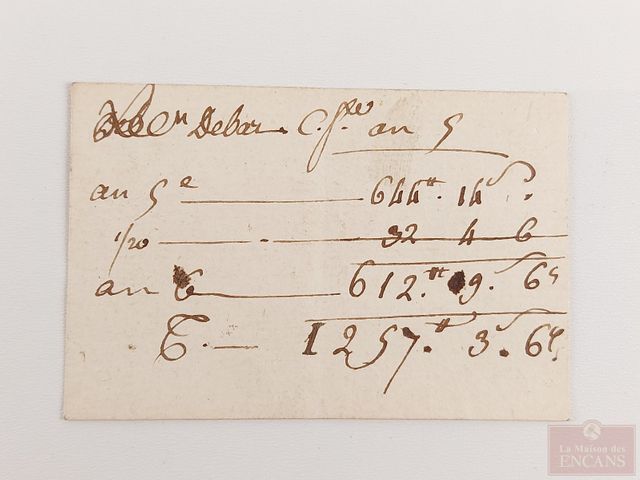 Debar. C. f.re an 5
an 5e 644tt. 14s.
1/20 - 32 4 6
an 6 612.tt 9.s 6d
T. 1257.tt 3.s 6d
La Maison des
ENCANS